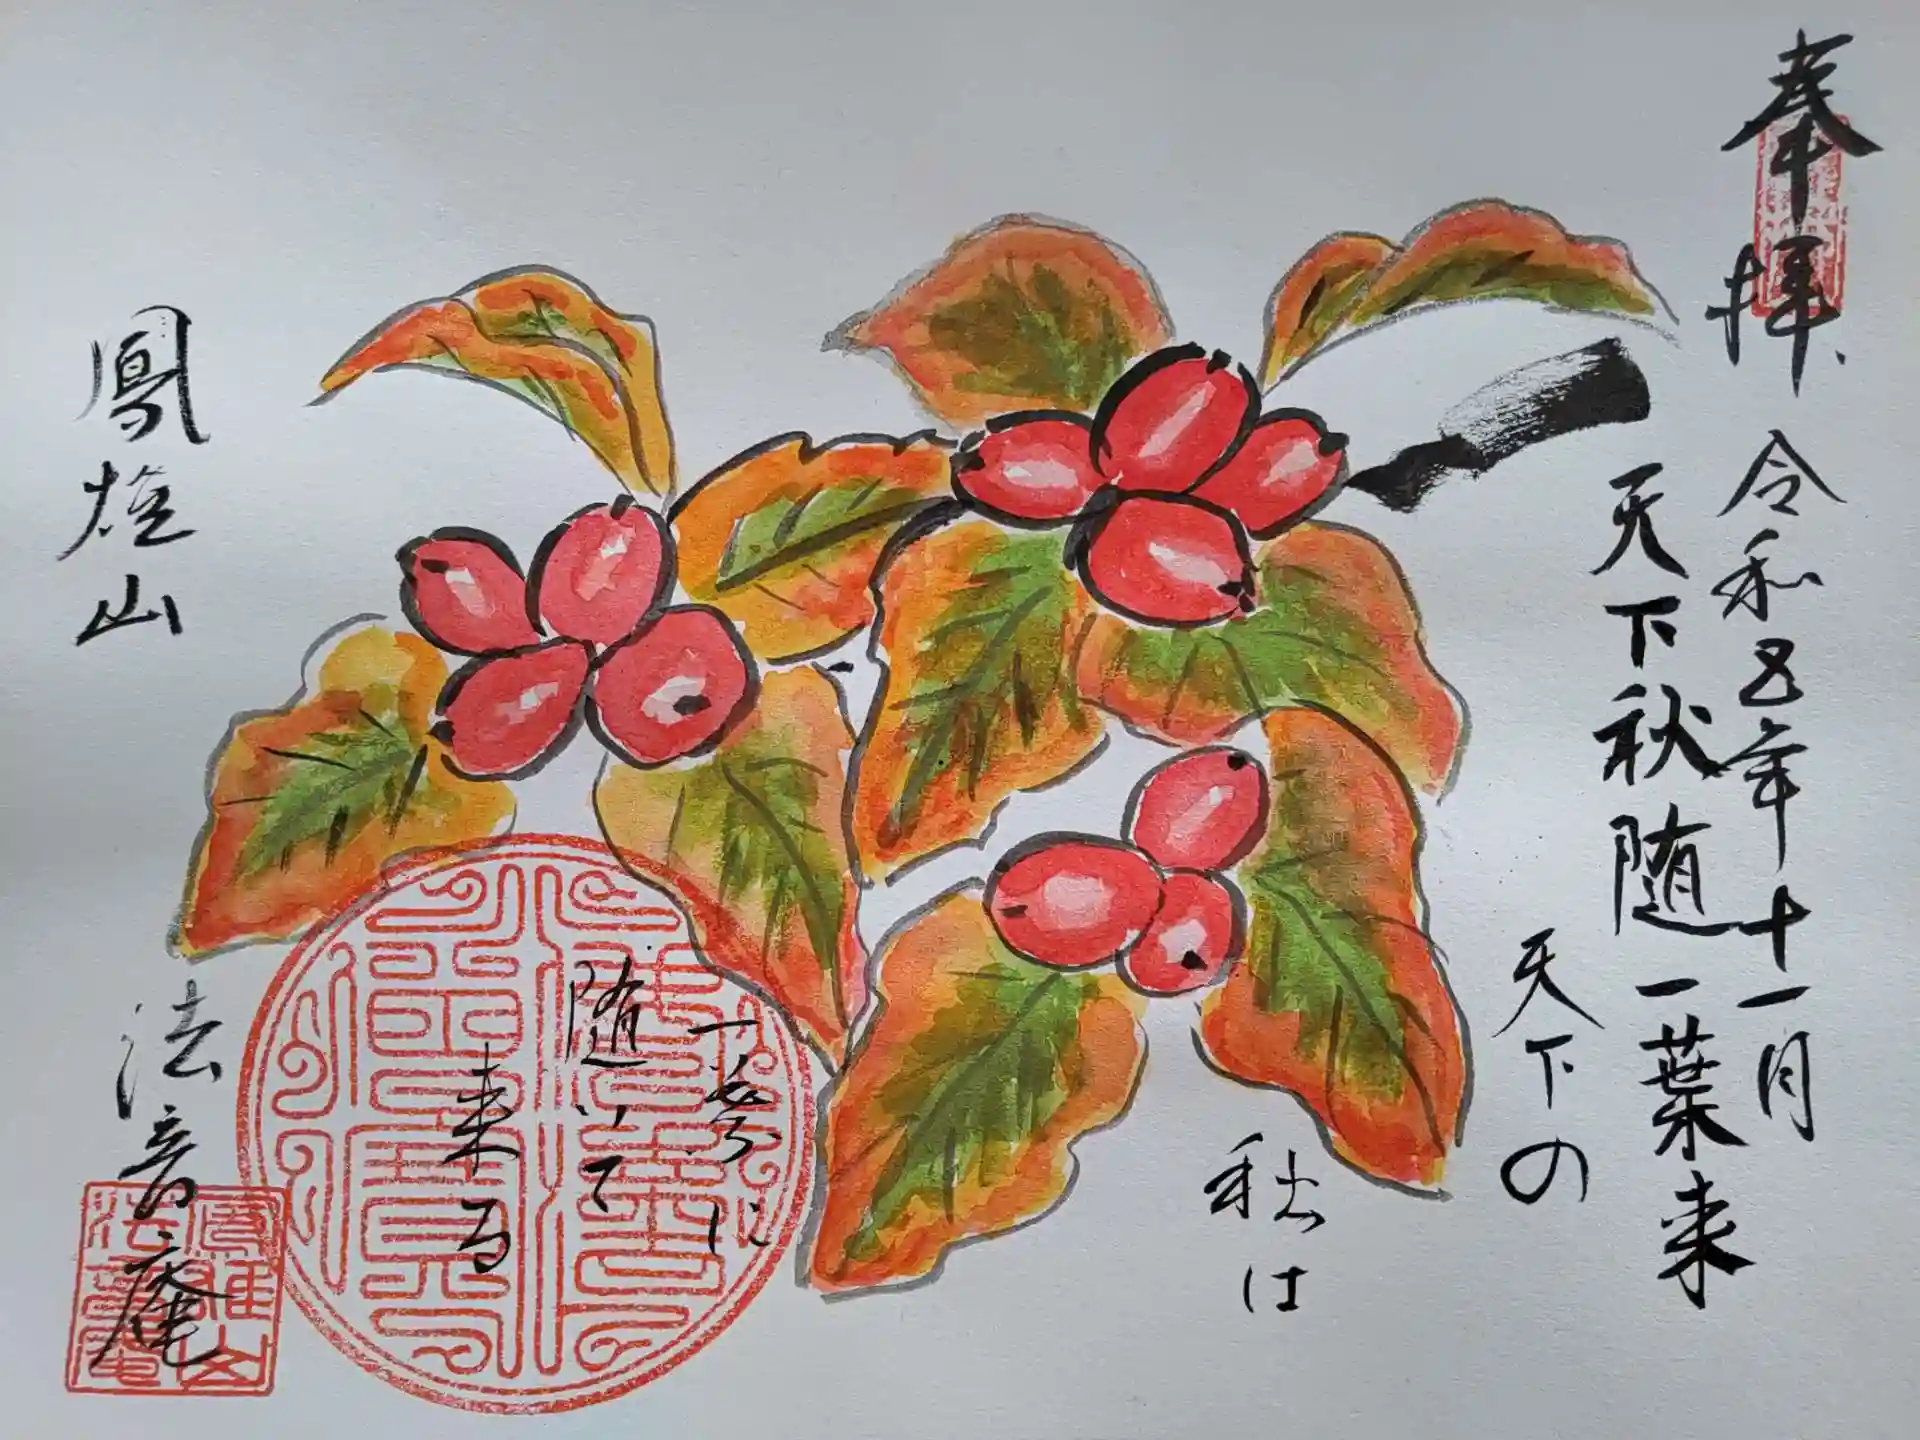 奉拝
令和五年十一月
天下秋随一葉来
天下の
秋は
一葉に
随って
来る
鳳雄山
法音庵
鳳雄山
法音庵